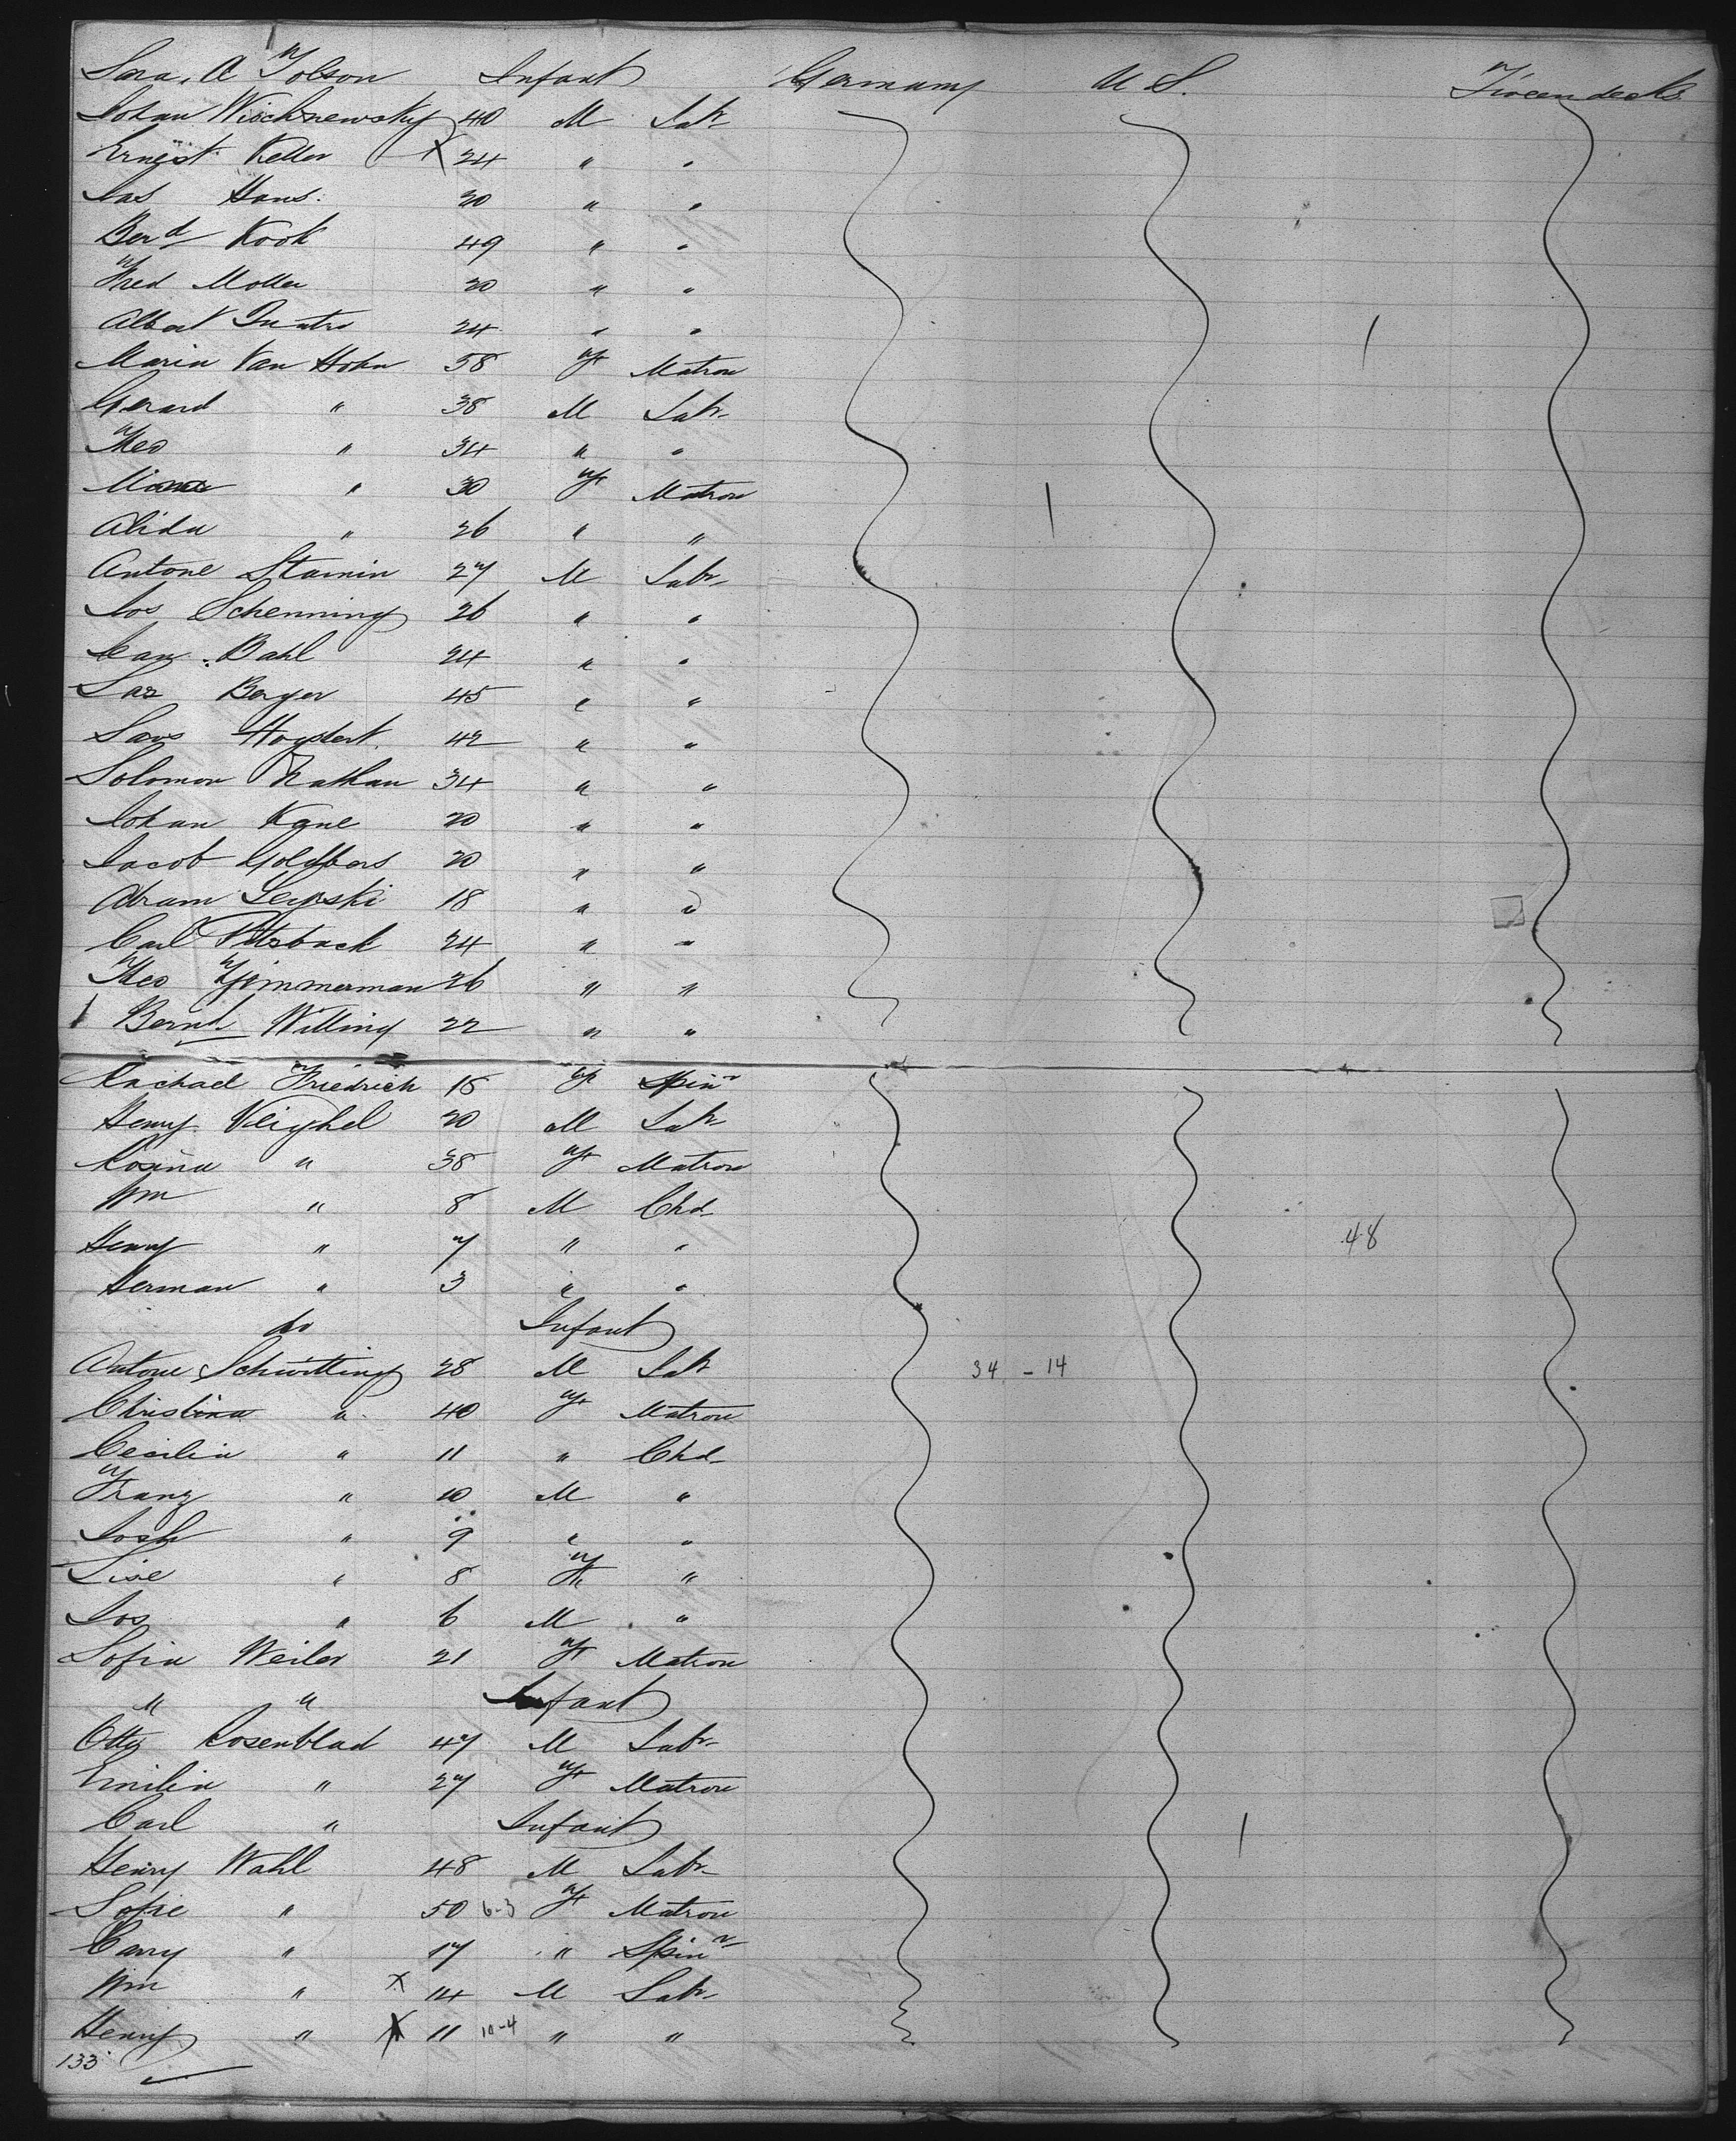 Sara. A Tolson Infant Germany U S. Tween decks
Johan Wischnewsky 40 M Labr
Ernest Keller X 24 " "
Jas Hans. 20 " "
Berd Kook 49 " "
Fred Moller 20 " "
Albert 24 " "
Maria Van Hohn 58 F Matron
Gerard " 38 M Labr
Theo " 34 " "
" 30 F Matron
Alida " 26 " "
Antone Stamin 27 M Labr
Jos Schenning 26 " "
Bahl 24 " "
Laz Berger 45 " "
42 " "
Solomon Nathan 34 " "
Johan Kane 20 " "
Jacob 20 " "
Abram Lepski 18 " "
Carl 24 " "
Theo Zimmerman 26 " "
Bernd Willing 22 " "
Rachael Friedrich 18 F Spinr
Henry Veighel 20 M Labr
Rosina " 38 F Matron
Wm " 8 M Chd
Henry " 7 " " 48
Herman " 3 " "
do Infant
Antone Schwitting 28 M Labr 34 - 14
Christina " 40 F Matron
Cecilia " 11 " Chd
Franz " 10 M "
Josh " 9 " "
Lise " 8 F "
Jos " 6 M "
Sofia Weiler 21 F Matron
" " Infant
Otto Rosenblad 47 M Labr
Emilia " 27 F Matron
Carl " Infant
Henry Wahl 48 M Labr
Sofie " 50 6-3 F Matron
Carry " 17 " Spinr
Wm " X 14 M Labr
Henry " X 11 10-4 " "
133